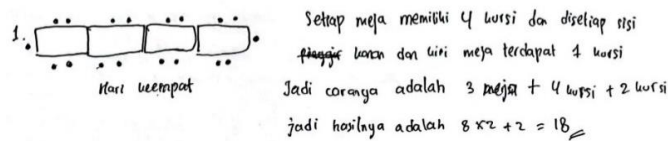 1.
Hari keempat
Setiap meja memiliki 4 kursi dan disetiap sisi
kanan dan kiri meja terdapat 1 kursi
Jadi caranya adalah 3 meja + 4 kursi + 2 kursi
jadi hasilnya adalah 8 x 2 + 2 = 18